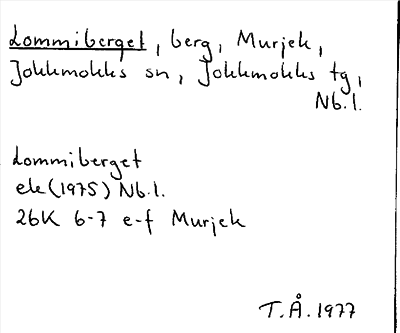 Lommiberget, berg, Murjek,
Jokkmokks sn, Jokkmokks tg,
Nb.l.
Lommiberget
ek(1975) Nb.l.
26K 6-7 e-f Murjek
T.Å.1977